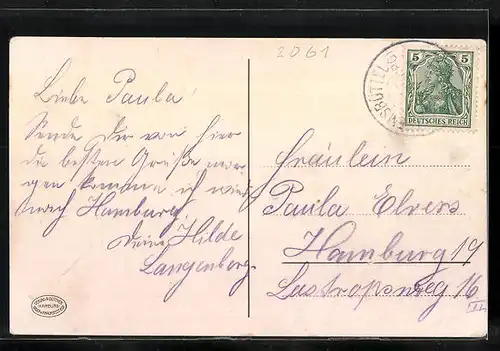 2061
Liebe Paula!
Sende dir von hier
die besten Grüße mor-
gen komme ich wieder
nach Hamburg.
Deine Hilde
Langenberg.
5 5
DEUTSCHES REICH
Fräulein
Paula Elvers
Hamburg 19
Lastropsweg 16
II